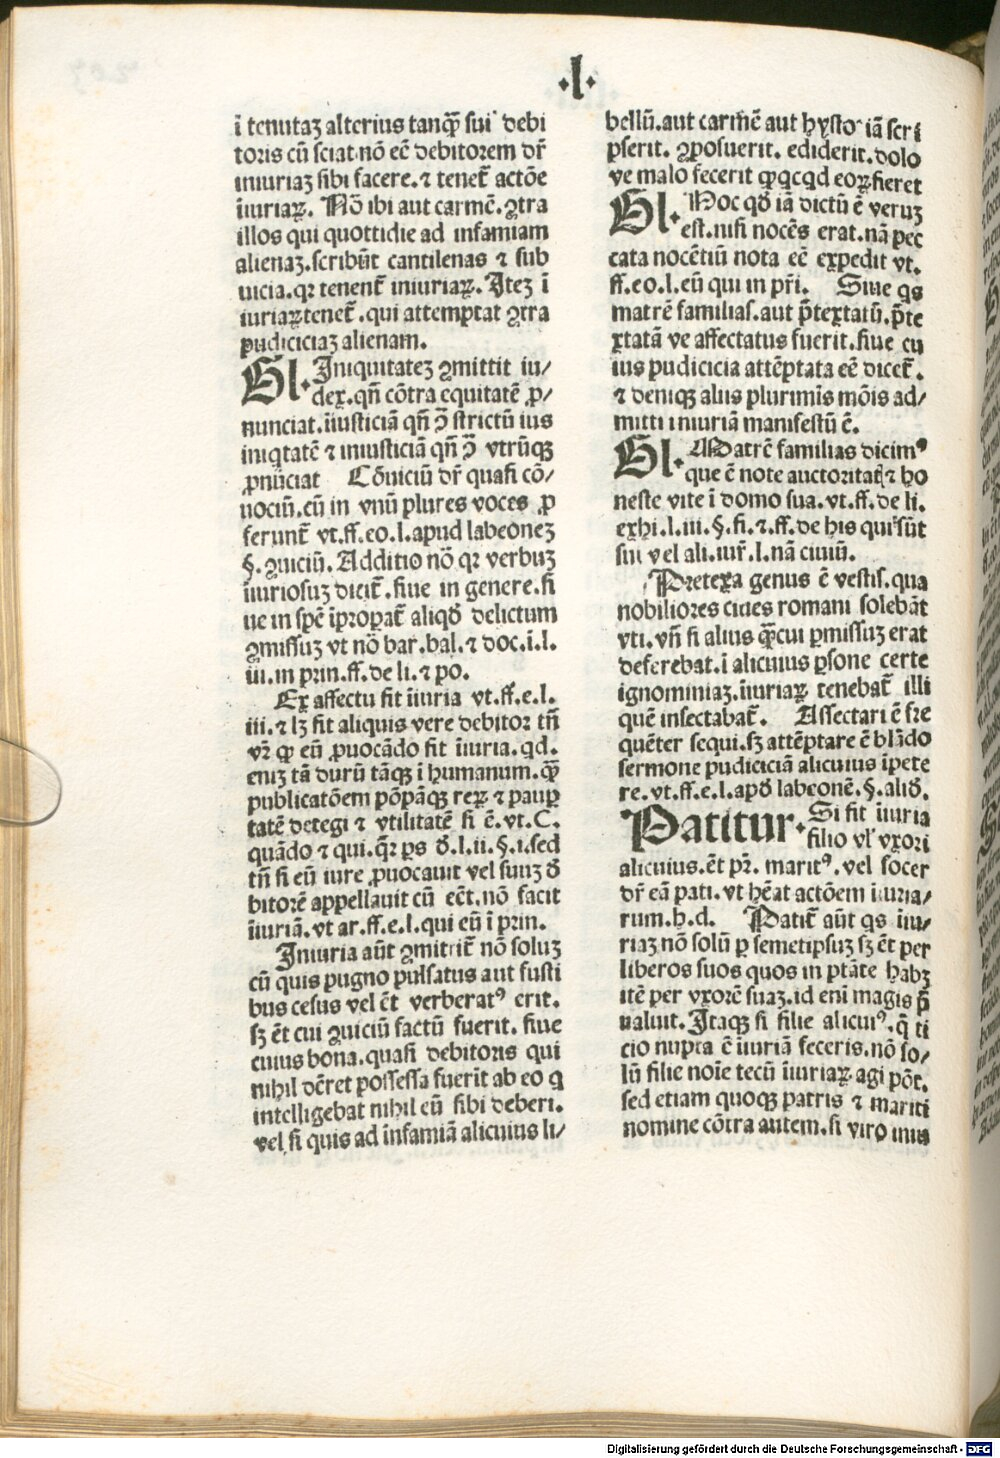 ·l·
ī tenutaʒ alterius tanqȝ sui debi
toris cū sciat nō eē debitorem dr̄
iniuriaʒ sibi facere. ⁊ tenet̄ actōe
īiuriaꝝ. Nō ibi aut carmē. ꝯtra
illos qui quottidie ad infamiam
alienaʒ. scribūt cantilenas ⁊ sub
uicia. qꝛ tenent̄ iniuriaꝝ. Iteʒ ī
iuriaꝝ tenet̄. qui attemptat ꝯtra
pudiciciaʒ alienam.
Gl. Iniquitateʒ ꝯmittit iu/
dex. qn̄ cōtra equitatē ꝓ/
nunciat. īiusticiā qn̄ ꝯ̄ strictū ius
iniqtatē ⁊ iniusticiā qn̄ ꝯ̄ vtrūqȝ
ꝓnūciat Cōuiciū dr̄ quasi cō/
uociū. cū in vnū plures voces ꝓ
ferunt̄ vt. ff. eo. l. apud labeoneʒ
§. ꝯuiciū. Additio nō qꝛ verbuʒ
īiuriosuʒ dicit̄. siue in genere. si
ue in spē īpropat̄ aliqd̄ delictum
ꝯmissuʒ vt nō bar. bal. ⁊ doc. ī. l.
iii. in prin. ff. de li. ⁊ po.
Ex affectu fit īiuria vt. ff. e. l.
iii. ⁊ lʒ fit aliquis vere debitor tn̄
vꝛ̄ ꝙ eū ꝓuocādo fit īiuria. qd.
eniʒ tā durū tāqȝ ī humanum. qȝ̄
publicatōem pōpāqȝ reꝝ ⁊ paup̲
tatē detegi ⁊ vtilitatē si ē. vt. C.
quādo ⁊ qui. q̄r ps d̄. l. ii. §. i. sed
tn̄ si eū iure ꝓuocauit vel suuʒ d̄
bitorē appellauit cū eēt. nō facit
īiuriā. vt ar. ff. e. l. qui eū ī prin.
Iniuria aūt ꝯmittit̄ nō soluʒ
cū quis pugno pulsatus aut fusti
bus cesus vel ēt verberatꝰ erit.
sʒ ēt cui ꝯuiciū factū fuerit. siue
cuius bona. quasi debitoris qui
nihil dēret possessa fuerīt ab eo q
intelligebat nihil eū sibi deberi.
vel si quis ad īnfamiā alicuius li/
bellū. aut carmē aut hysto iā scri
pserit. ꝯposuerit. ediderit. dolo
ve malo fecerit ꝙqcqd eoꝝ fieret
Gl. Hoc qd̄ iā dictū ē veruʒ
est. nisi nocēs erat. nā pec
cata nocētiū nota eē expedit vt.
ff. eo. l. eū qui in pri̅. Siue qs
matrē familias. aut p̄textatū. p̄te
xtatā ve affectatus fuerit. siue cu
ius pudicicia attēptata eē dicet̄.
⁊ deniqȝ aliis plurimis mōis ad/
mitti iniuriā manifestū ē.
Gl. Matrē familias dicimꝰ
que ē note auctoritatꝭ ⁊ ho
neste vite ī domo sua. vt. ff. de li.
exhi. l. iii. §. fi. ⁊. ff. de his qui sūt
sui vel ali. iur̄. l. nā ciuiū.
Pretexa genus ē vestis. qua
nobiliores ciues romani solebāt
vti. vn̄ si alius qȝcui ꝑmissuʒ erat
deferebat. ī alicuius ꝑsone certe
ignominiaʒ. īiuriaꝝ tenebat̄ illi
quē insectabat̄. Assectari ē fre
quēter sequi. sʒ attēptare ē blādo
sermone pudiciciā alicuius īpete
re. vt. ff. e. l. apd̄ labeonē. §. aliq̄d.
Patitur. Si fit īiuria
filio vl̛ vxori
alicuius. ēt pr̄. maritꝰ. vel socer
dr̄ eā pati. vt hēat actōem īiuria/
rum. h. d. Patit̄ aūt qs īiu/
riaʒ nō solū ꝑ semetipsuʒ sʒ ēt per
liberos suos quos in ptāte habʒ
itē per vxorē suaʒ. id eni̅ magis p̄
ualuit. Itaqȝ si filie alicuiꝰ. q̄ ti
cio nupta ē īiuriā feceris. nō so/
lū filie noīe tecū īiuriaꝝ agi pōt.
sed etiam quoqȝ patris ⁊ mariti
nomine cōtra autem. si viro iniu
Digitalisierung gefördert durch die Deutsche Forschungsgemeinschaft - DFG